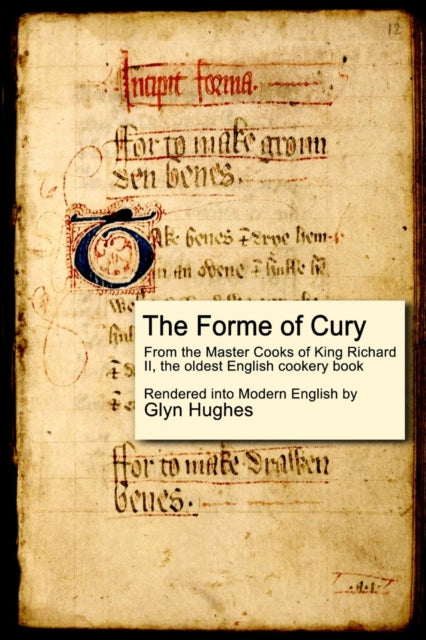 12
Incipit forma.
ffor to make groun
den benes.
Take benes ⁊ drye hem
in an ovene ⁊ hulle he
The Forme of Cury
From the Master Cooks of King Richard
II, the oldest English cookery book
Rendered into Modern English by
Glyn Hughes
ffor to make drawen
benes.